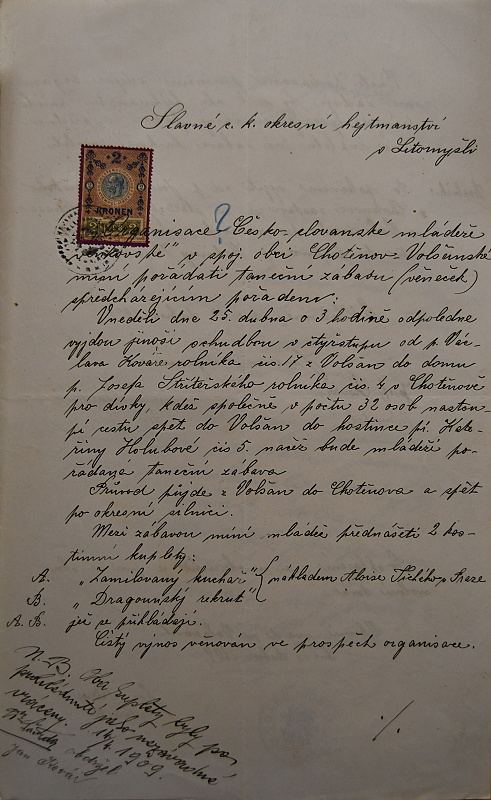 Slavné c. k. okresní hejtmanství
v Litomyšli
2
KRONEN
?
„Organisace Česko-slovanské mládeže
venkovské" v spoj. obci Chotěnov-Volšanské
míní pořádati taneční zábavu (věneček)
s předcházejícím pořadem:
V neděli dne 25. dubna o 3 hodině odpoledne
vyjdou jinoši s hudbou v čtyřstupu od p. Vác-
lava Kováře rolníka čís. 17 z Volšan do domu
p. Josefa Stříteřského rolníka čís. 4 v Chotěnově
pro dívky, kdež společně v počtu 32 osob nastou-
pí cestu zpět do Volšan do hostince pí. Kate-
řiny Holubové čís 5. načež bude mládeží po-
řádána taneční zábava
Průvod půjde z Volšan do Chotěnova a zpět
po okresní silnici.
Mezi zábavou míní mládež přednášeti 2 kos-
timní kuplety:
A. „Zamilovaný kuchař" nákladem Aloise Tichého v Praze
B. „Dragounský rekrut"
A. B. jež se přikládají.
Čistý výnos věnován ve prospěch organisace.
N. B. Oba kuplety byly po
prohlédnutí jako nezávadné
vráceny. 14/4 1909.
obdržel
Jan Kovář
./.